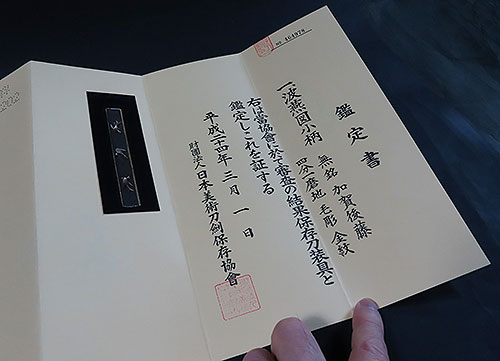 No 464978
鑑定書
一 波燕図小柄 無銘 加賀後藤
四分一磨地 毛彫 金紋
右は當協會に於て審査の結果保存刀装具と
鑑定しこれを証する
平成二十四年 三月 一日
財團法人日本美術刀劍保存協會